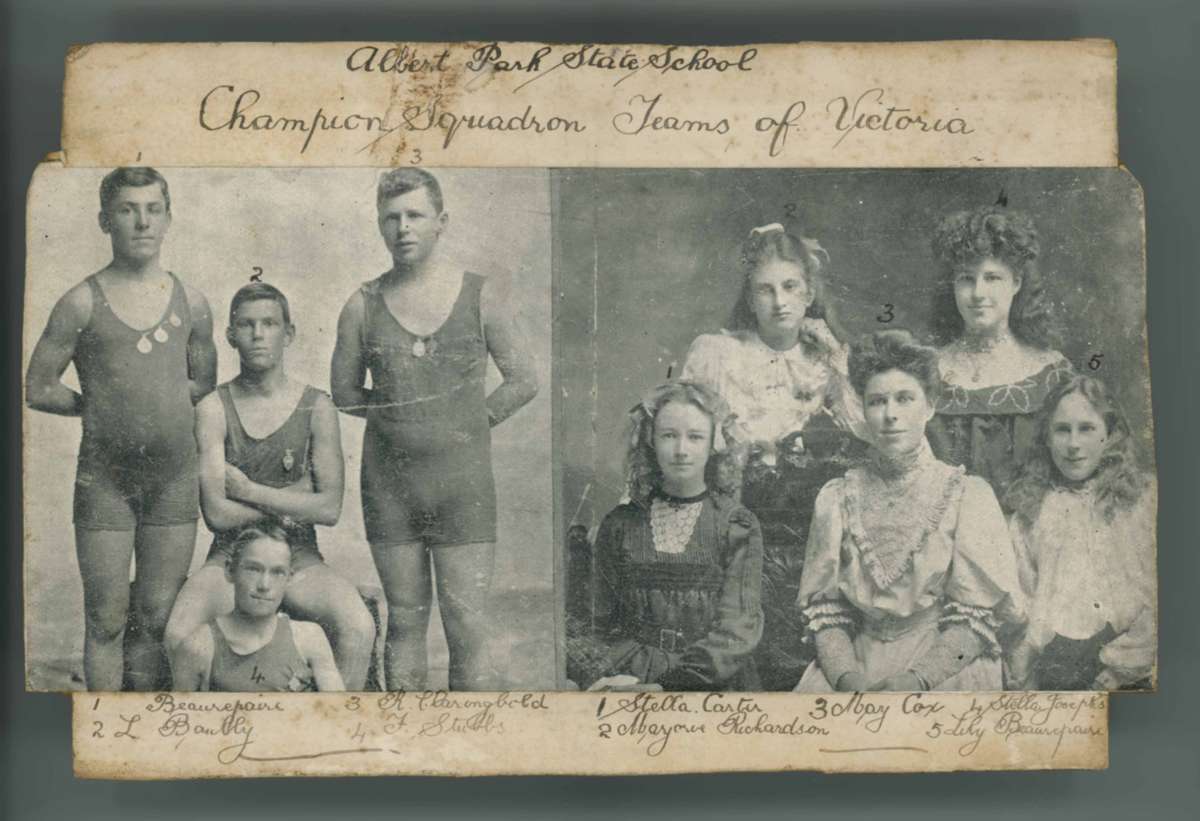 Albert Park State School
Champion Squadron Teams of Victoria
1 3
2
4
2 4
3
1 5
1 Beaurepaire 3 R. Claringbold
2 L Baubly 4 F. Stubbs
1 Stella. Carter 3 May Cox 4 Stella Josephs
2 Marjorie Richardson 5 Lily Beaurepaire